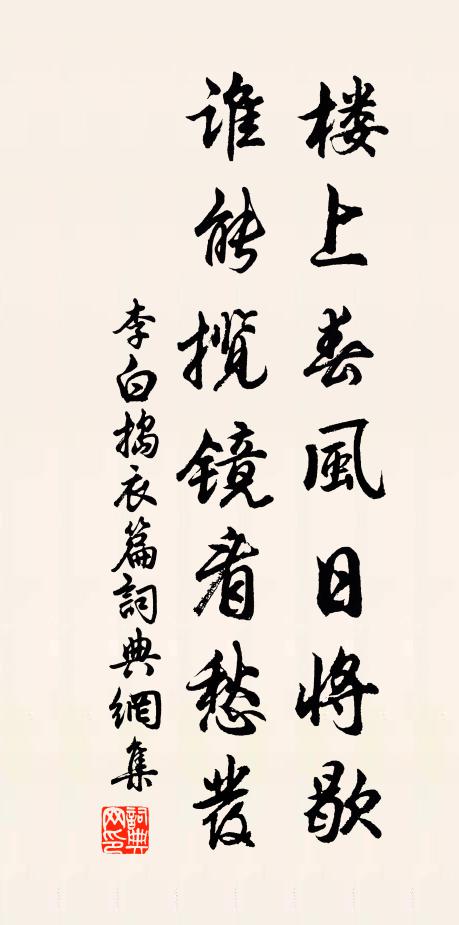 楼上春風日将歇
谁能揽镜看愁發
李白搗衣篇詞典網集
詞典網印